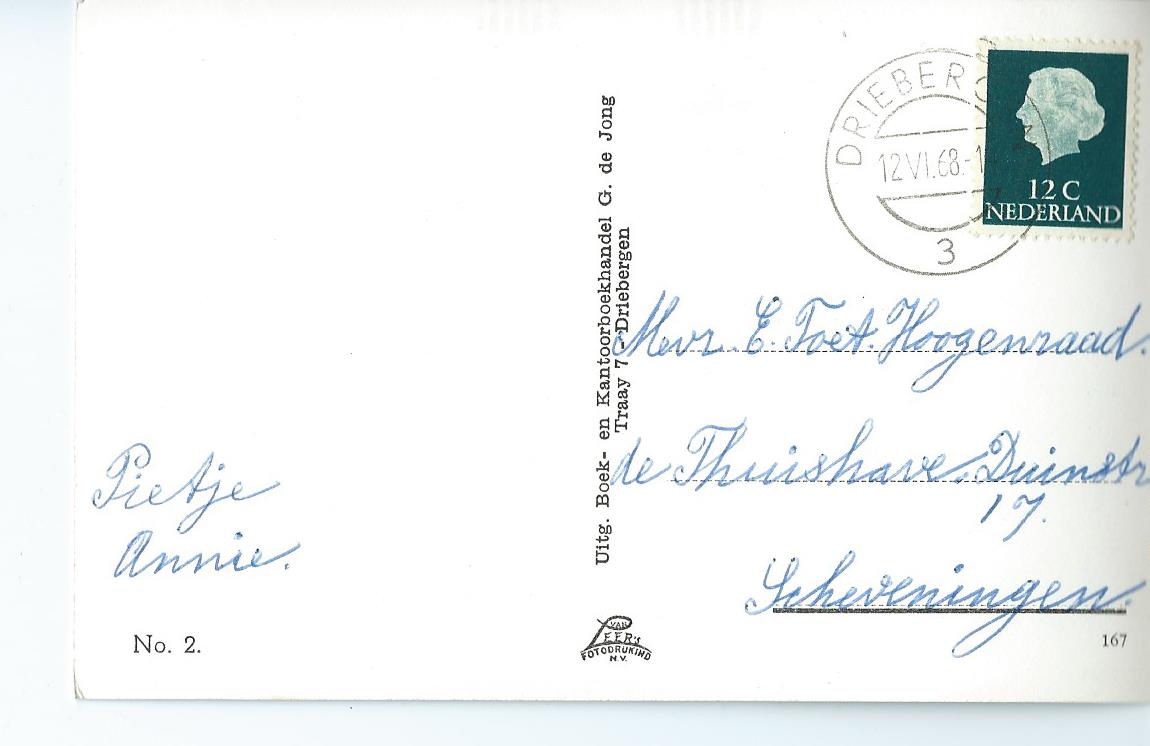 DRIEBERG
12.VI.68.-1
3
12 C
NEDERLAND
Uitg. Boek- en Kantoorboekhandel G. de Jong
Traay 7 - Driebergen
Mevr. E. Toet. Hoogenraad.
de Thuishave. Duinstr
17.
Scheveningen.
Pietje
Annie.
No. 2.
VAN
LEER'S
FOTODRUKIND
N.V.
167